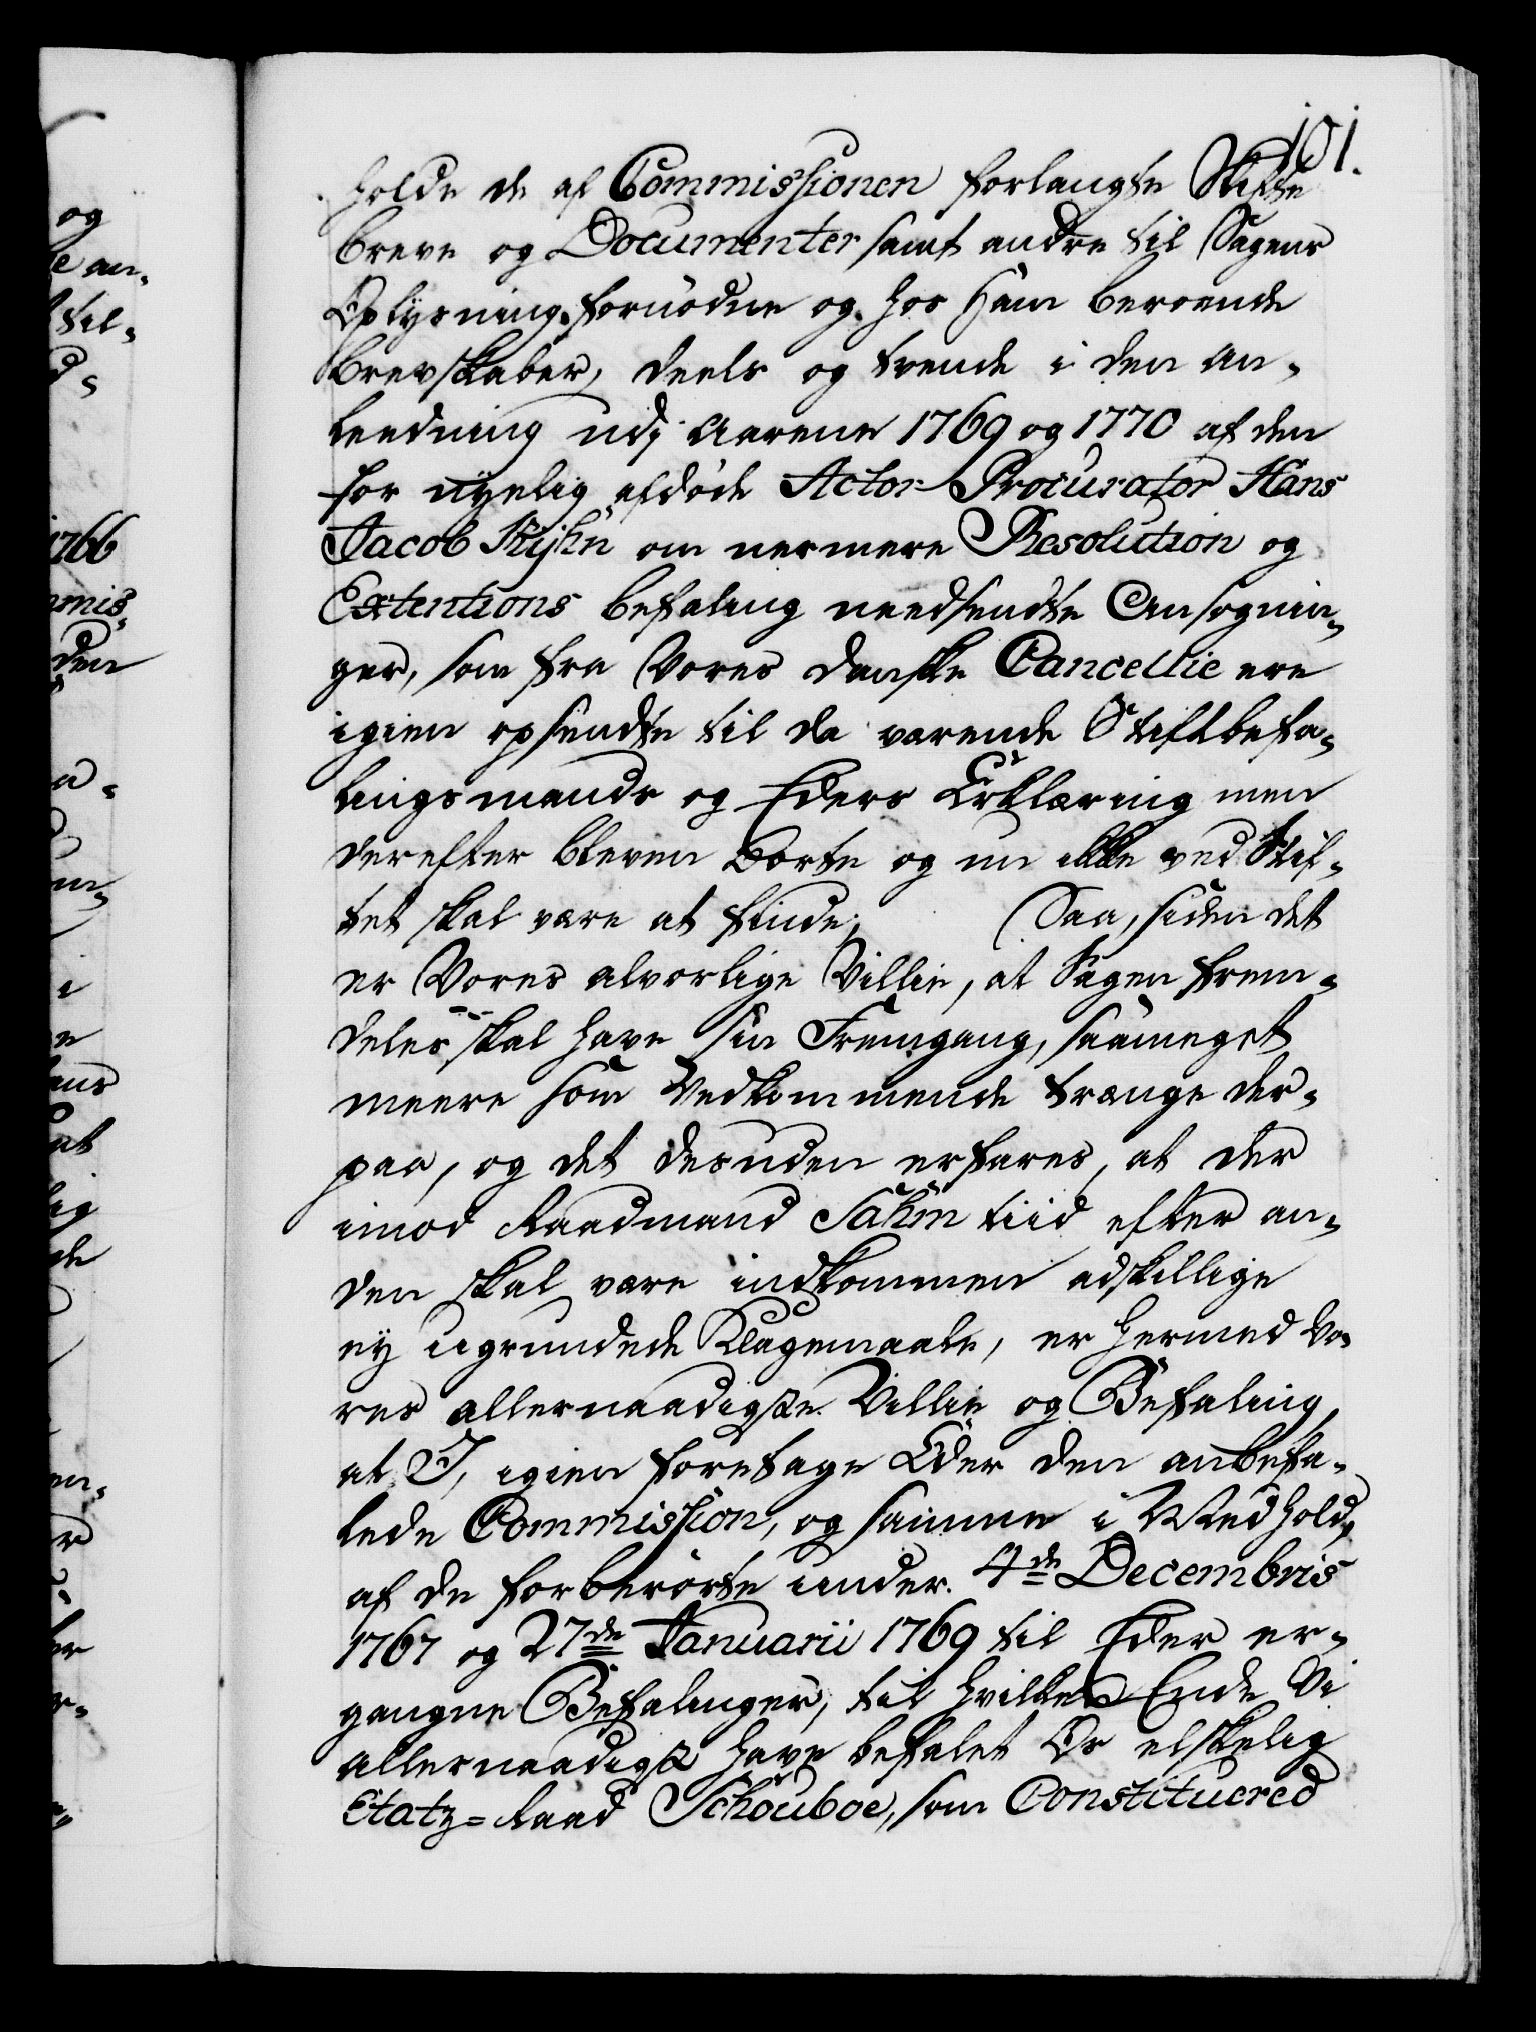 101.
holde de af Commissionen forlangte Skifte
breve og Documenter samt andre til Sagens
Oplysning fornødne og hos ham beroende
Brevskaber, deels og trende i den An-
leedning udj Aarene 1769 og 1770 af den
for nyelig afdøde Actor Procurator Hans
Jacob Kyhn om nermere Resolution og
Extentions befaling needsendte Ansøgnin-
ger, som fra Vores danske Cancellie ere
igien opsendte til da værende Stiftbefa-
lingsmands og Eders Erklæring men
derefter bleven borte og nu ikke ved Stif-
tet skal være at finde; Saa, siden det
er Vores alvorlige Villie, at Sagen frem-
deles skal have sin Fremgang, saameget
meere som Vedkommende trænge der-
paa, og det desuden erfares, at der
imod Raadmand Sahm tiid efter an-
den skal være indkommen adskillige
ey ugrundede Klagemaale, er hermed Vo-
res allernaadigste Villie og Befaling,
at I, igien foretage Eder den anbefa-
lede Commission, og samme i Medhold
af de forberørte under 4de Decembris
1767 og 27de Januarii 1769 til Eder er-
gangne Befalinger, til hvilken Ende Vi
allernaadigst have befalet Os elskelig
Etatz=Raad Schouboe, som Constituered
og
e an-
til-
1766
mis-
den
a-
un-
i
e
ens
at
lig
de
en-
r
er
r-